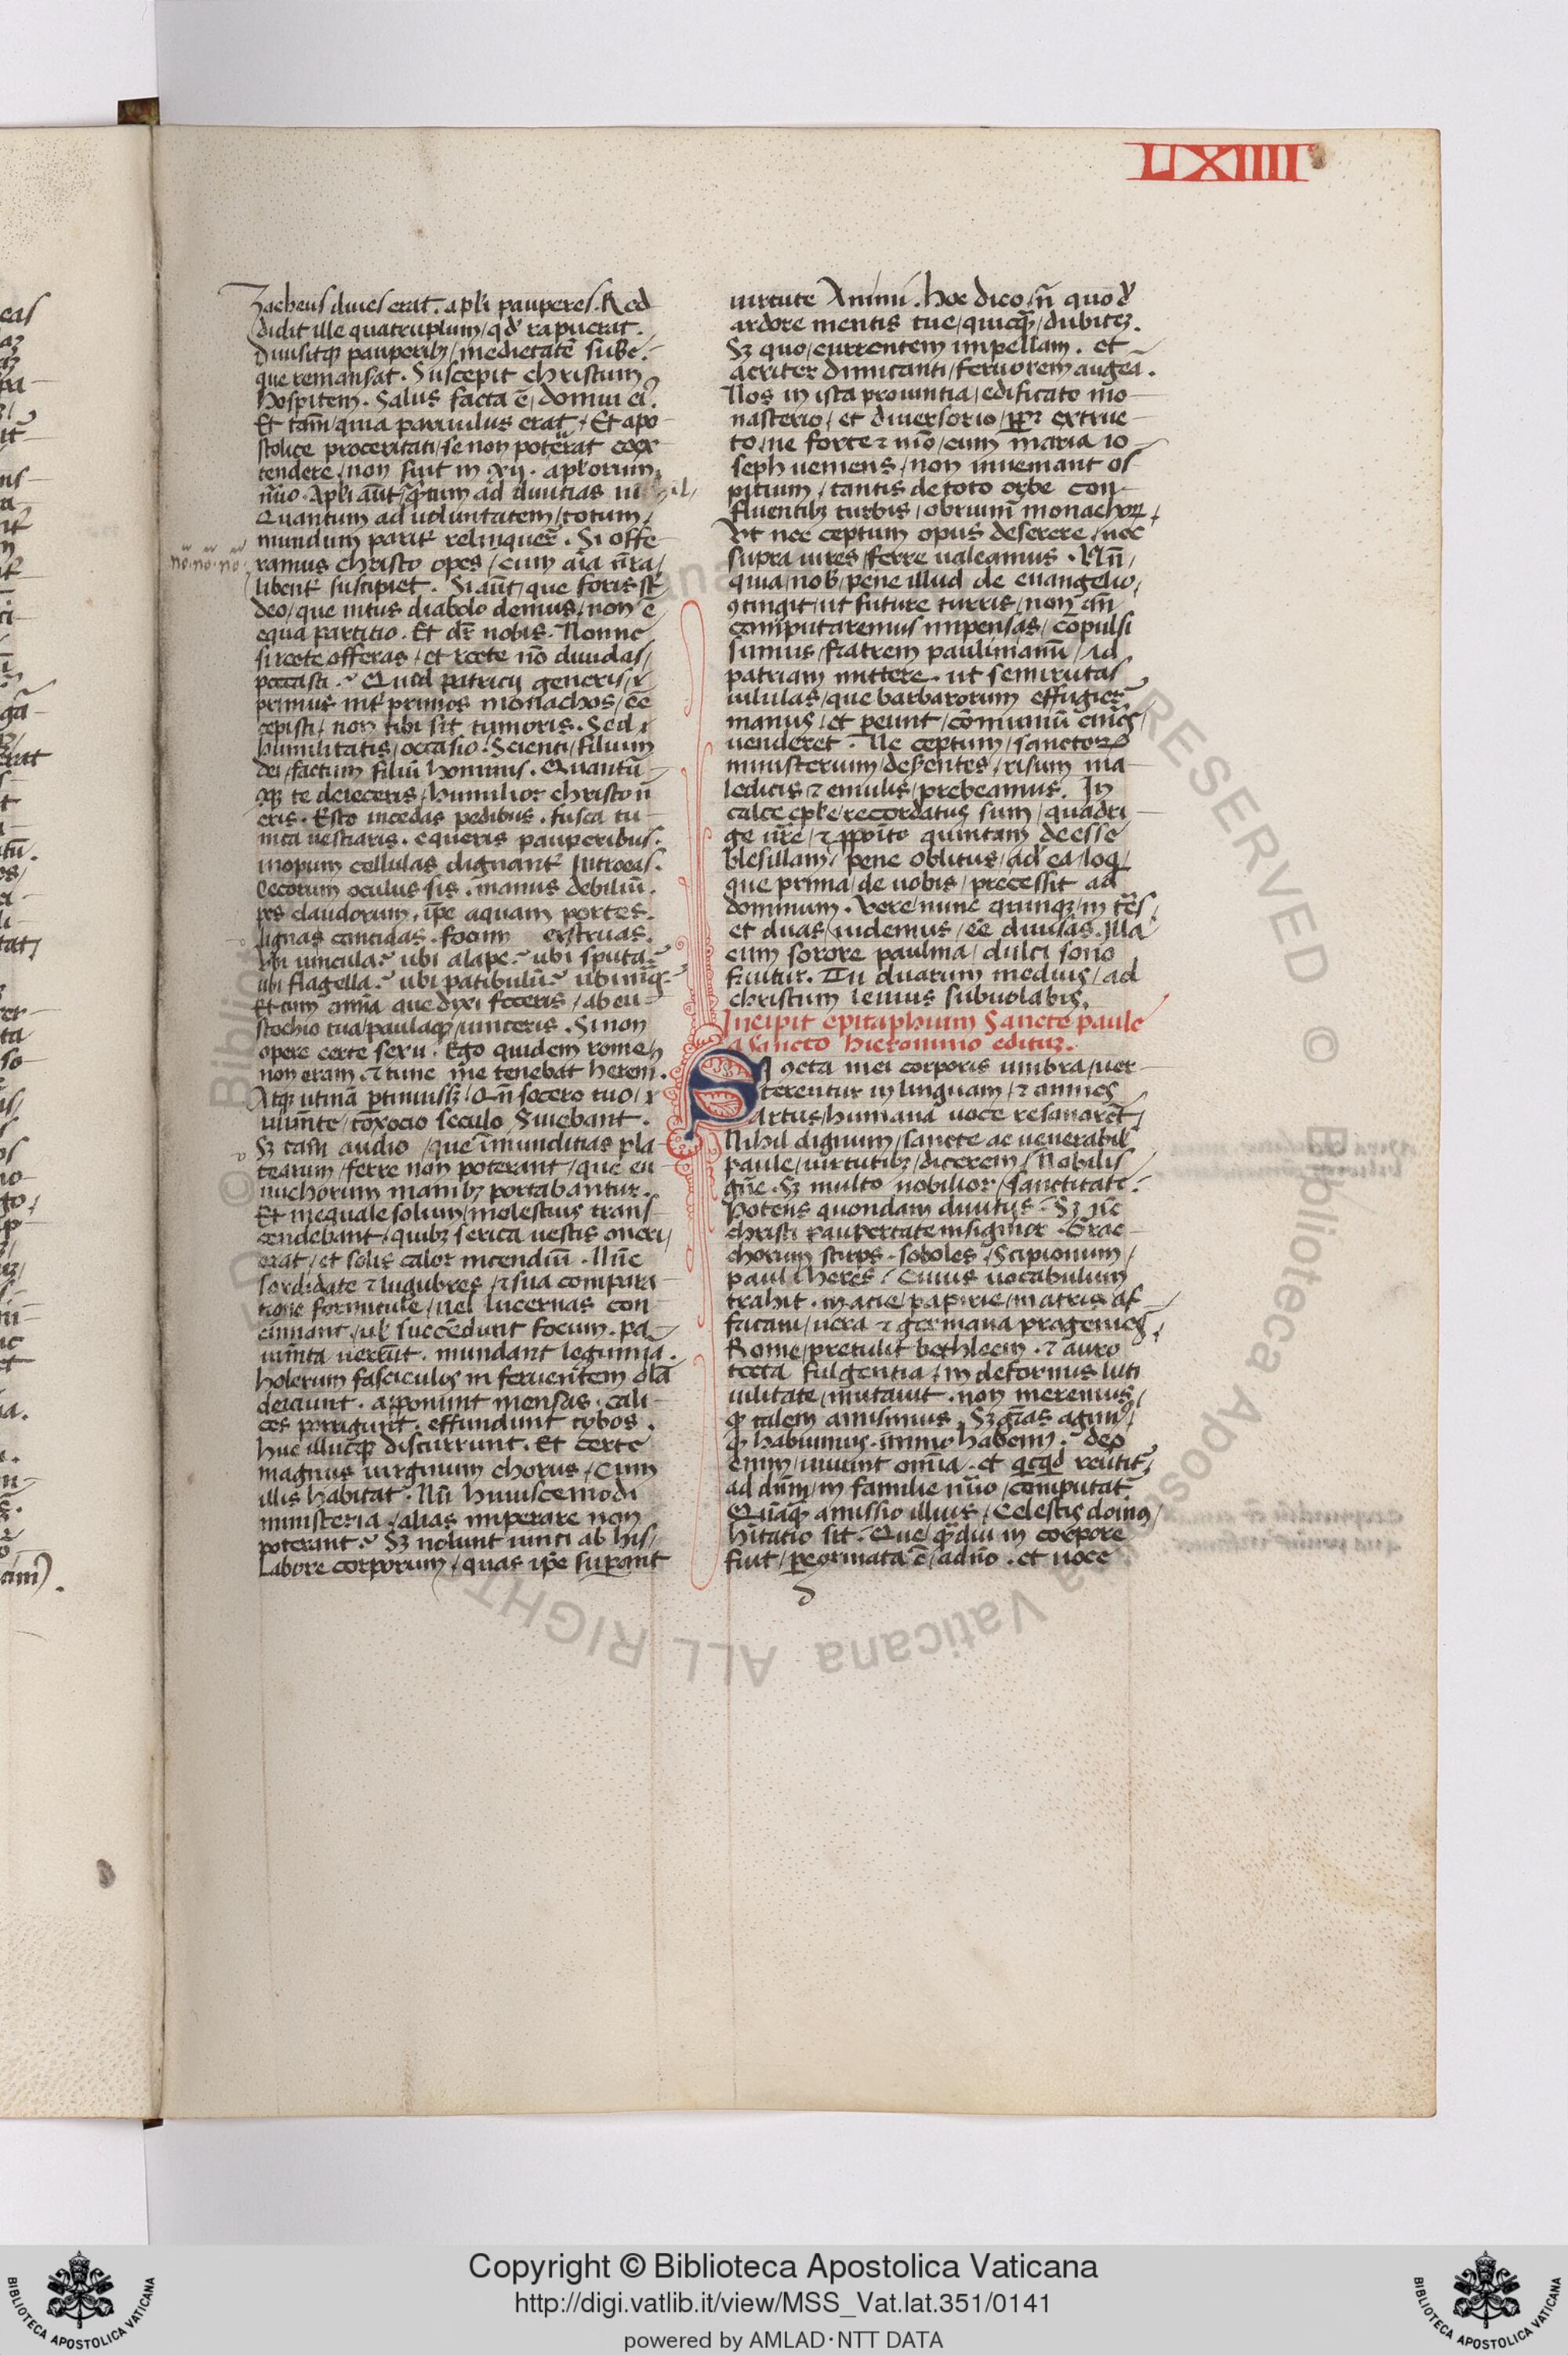 LXIIII
Zacheus diues erat. apl̅i pauperes. Red
didit ille quatruplum / qd̕ rapuerat.
Diuisitqꝫ pauperibꝫ / medietatē subē.
que remansat. Suscepit christum
hospitem. Salus facta ē / domui ei᾽.
Et tam̅ / quia paruulus erat / Et apo
stolice proceritati / se non poterat coex
tendere / non fuit in xij. apl̅orum
nūo. Apl̅i aūt / q̄tum ad diuitias nichil /
Quantum ad uoluntatem / totum /
mundum parit᷑ relinquer̄. Si offe
no no no
ramus christo opes / cum aīa n̄ra /
libent᷑ suscipiet. Si aūt / que foris st̄
deo / que intus diabolo demus / non ē
equa partitio. Et dr̄ nobis. Nonne
si recte offeras / et recte nō diuidas /
peccasti. Quid patricij generis / ⁊
primus int᷑ primos monachos / eē
cepisti / non tibi sit tumoris. Sed ⁊
humilitatis / occasio. Scienti / filium
dei / factum filiū hominis. Quantū
qꝫ te deieceris / humilior christo n̄
eris. Esto incedas pedibus. fusca tu
nica uestiaris. equeris pauperibus.
inopum cellulas dignant᷑ introeas.
Cecorum oculus sis. manus debiliū.
pes claudorum. ip̄e aquam portes.
lignas concidas. focum exstruas.
ubi uincula. ubi alape. ubi sputa.
ubi flagella. ubi patibulū. ubi
Et cum om̄ia que dyxi feceris / ab eu
stochio tua / paulaqꝫ / uinceris. Si non
opere certe sexu. Ego quidem rome
non eram. ⁊ tunc me tenebat herem.
Atqꝫ utinā p̱tinuissꝫ / Qn̄ socero tuo / ⁊
uiuente / toxocio seculo Suiebant.
Sꝫ tam̄ audio / que īmunditias pla
tearum / ferre non poterant / que eu
nuchorum manibꝫ portabantur.
Et inequale solum / molestius trans
cendebant / quibꝫ serica uestis oneri /
erat / et solis calor incendiū. Nūc
sordidate ⁊ lugubres / ⁊ sua compara
tione fortitule / uel lucernas con
cinnant / ul᷑ succedunt focum. pa
uimta uerrūt. mundant legumia.
holerum fasciculos in feruentem ollā
deiciunt. apponunt mensas. cali
ces porrigunt. effundunt cybos.
huc illucqꝫ discurrunt. Et certe
magnus uirginum chorus / Cum
illis habitat. Nū huiuscemodi
ministeria / alias imperare non
poterant. Sꝫ nolunt uinci ab his /
Labore corporum / quas ip̄e superant
uirtute Animi. hoc dico / n̄ quod̕
ardore mentis tue / quicq̄ / dubitem.
Sꝫ quo / currentem impellam. et
acriter dimicanti / feruorem augeā.
Nos in ista prouintia / edificato mo
nasterio / et diuersorio / extruc
to / ne forte ⁊ mō / cum maria io
seph ueniens / non inueniant os
pitium / tantis de toto orbe con
fluentibꝫ turbis / obruim̄ monachoꝝ /
Vt nec ceptum opus deserere / nec
supra uires / ferre ualeamus. Vn̄
quia / nob̄ / pene illud de euangelio /
ꝯtingit / ut future turris / non an̄
computaremus impensas / cōpulsi
sumus / fratrem paulinianū / Ad
patriam mittere. ut semirutas
uilulas / que barbarorum effugier̄
manus / et peunt / cōmuniū
uenderet. Ne ceptum / sanctoꝝ
ministerium / deferentes / risum ma
ledicis ⁊ emulis / prebeamus. In
calce epl̅e / recordatus sum / quadri
ge ur̄e / ⁊ ꝓpoīto quintam deesse
blesillam / pene oblitus / ad ea / loq̄
que prima / de uobis / precessit ad
dominum. Vere / nunc quinqꝫ / in tres
et duas / uidemus / eē diuisas. Illa
cum sorore paulina / dulci sono
fruitur. Tu duarum medius / ad
christum leuius subuolabis.
Incipit epitaphium Sancte paule
a sancto hieronimo editum.
SI ꝯcta mei corporis umbra / uer
terentur in linguam / ⁊ omnes
artus / humana uoce resonarēt /
Nihil dignum / sancte ac uenerabil᷑
paule / uirtutibꝫ / dicerem / Nobilis
gn̄e. Sꝫ multo nobilior / sanctitate.
Potens quondam diuitijs. Sꝫ nc̄
christi paupertate insignior. Grac
chorum stirps. soboles / Scipionum /
pauli heres. Cuius uocabulum
trahit. matie / papirie / matris af
facani / uera ⁊ germana progenies /
Rome / pretulit bethleem. ⁊ auro
tecta fulgentia / in deformis luti
uilitate / mutauit. non meremus /
qꝫ talem amisimus. Sꝫ gr̄as agim᾽ /
qꝫ habuimus. immo habem᾽. deo
enim / uiuunt om̄ia. et qcqd reutit᷑
ad dn̄m / in familie nūo / computat᷑
Quāqꝫ amissio illius / Celestis domus /
hītatio sit. Que q̄diu in corpore
fuit / peregrinata ē / a dn̄o. et uoce
Copyright © Biblioteca Apostolica Vaticana
http://digi.vatlib.it/view/MSS_Vat.lat.351/0141
powered by AMLAD·NTT DATA
BIBLIOTECA APOSTOLICA VATICANA
BIBLIOTECA APOSTOLICA VATICANA
© Biblioteca Apostolica Vaticana ALL RIGHTS RESERVED